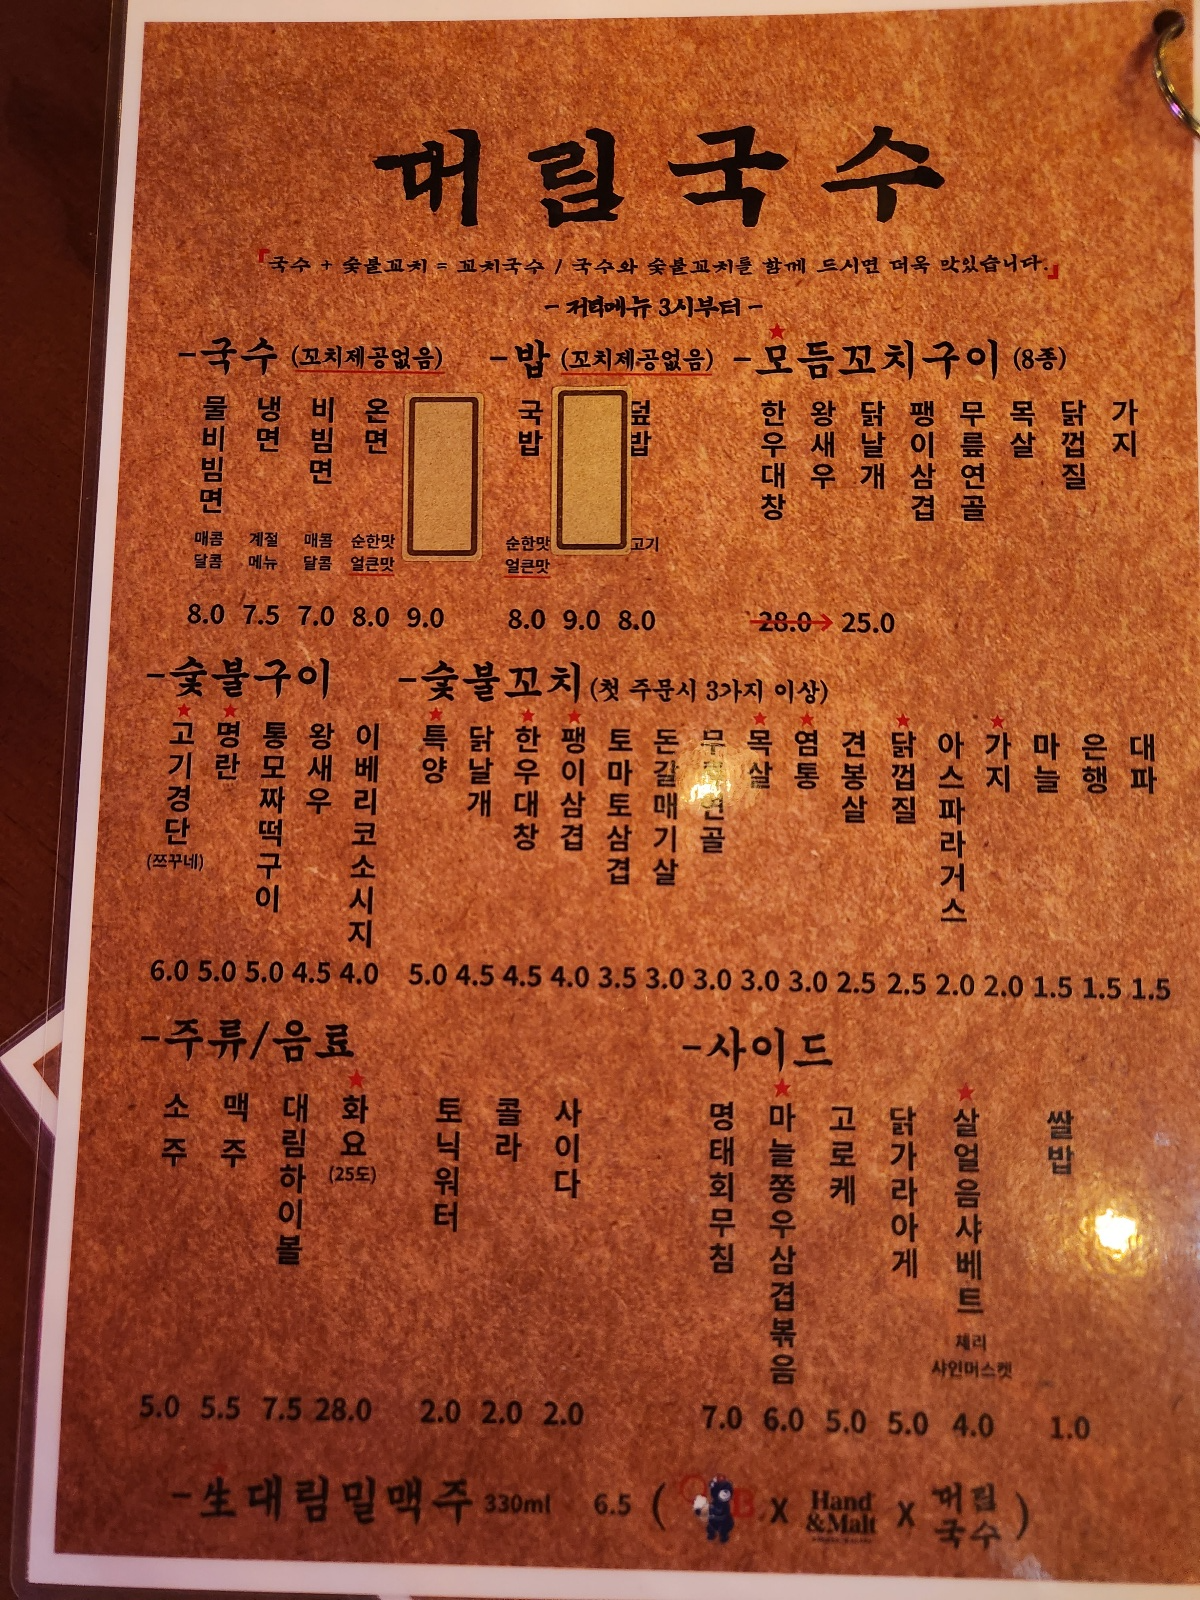 대림국수
「국수 + 숯불꼬치 = 꼬치국수 / 국수와 숯불꼬치를 함께 드시면 더욱 맛있습니다.」
메뉴 3시부터 -
-국수 (꼬치제공없음)
물비빔면 냉면 비빔면 온면
매콤달콤 계절메뉴 매콤달콤 순한맛얼큰맛
8.0 7.5 7.0 8.0 9.0
-밥 (꼬치제공없음)
국밥 덮밥
순한맛얼큰맛 고기
8.0 9.0 8.0
-모듬꼬치구이 (8종)
한우대창 왕새우 닭날개 팽이삼겹 무릎연골 목살 닭껍질 가지
28.0→25.0
-숯불구이
고기경단 명란 통모짜떡구이 왕새우 이베리코소시지
(쯔꾸네)
6.0 5.0 5.0 4.5 4.0
-숯불꼬치 (첫 주문시 3가지 이상)
특양 닭날개 한우대창 팽이삼겹 토마토삼겹 돈갈매기살 무릎연골 목살 염통 견봉살 닭껍질 아스파라거스 가지 마늘 은행 대파
5.0 4.5 4.5 4.0 3.5 3.0 3.0 3.0 3.0 2.5 2.5 2.0 2.0 1.5 1.5 1.5
-주류/음료
소주 맥주 대림하이볼 화요 토닉워터 콜라 사이다
(25도)
5.0 5.5 7.5 28.0 2.0 2.0 2.0
-사이드
명태회무침 마늘쫑우삼겹볶음 고로케 닭가라아게 살얼음샤베트 쌀밥
체리
샤인머스켓
7.0 6.0 5.0 5.0 4.0 1.0
-生대림밀맥주 330ml 6.5 ( X Hand &Malt X 대림국수 )